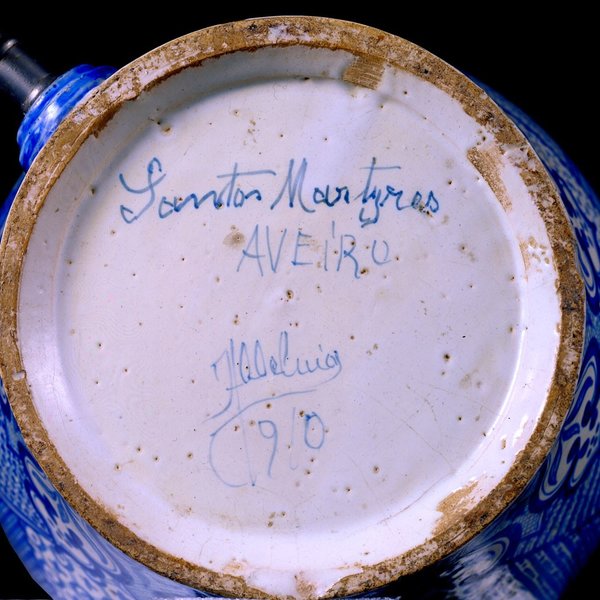 Santos Martyres
AVEIRO
JAleluia
1910